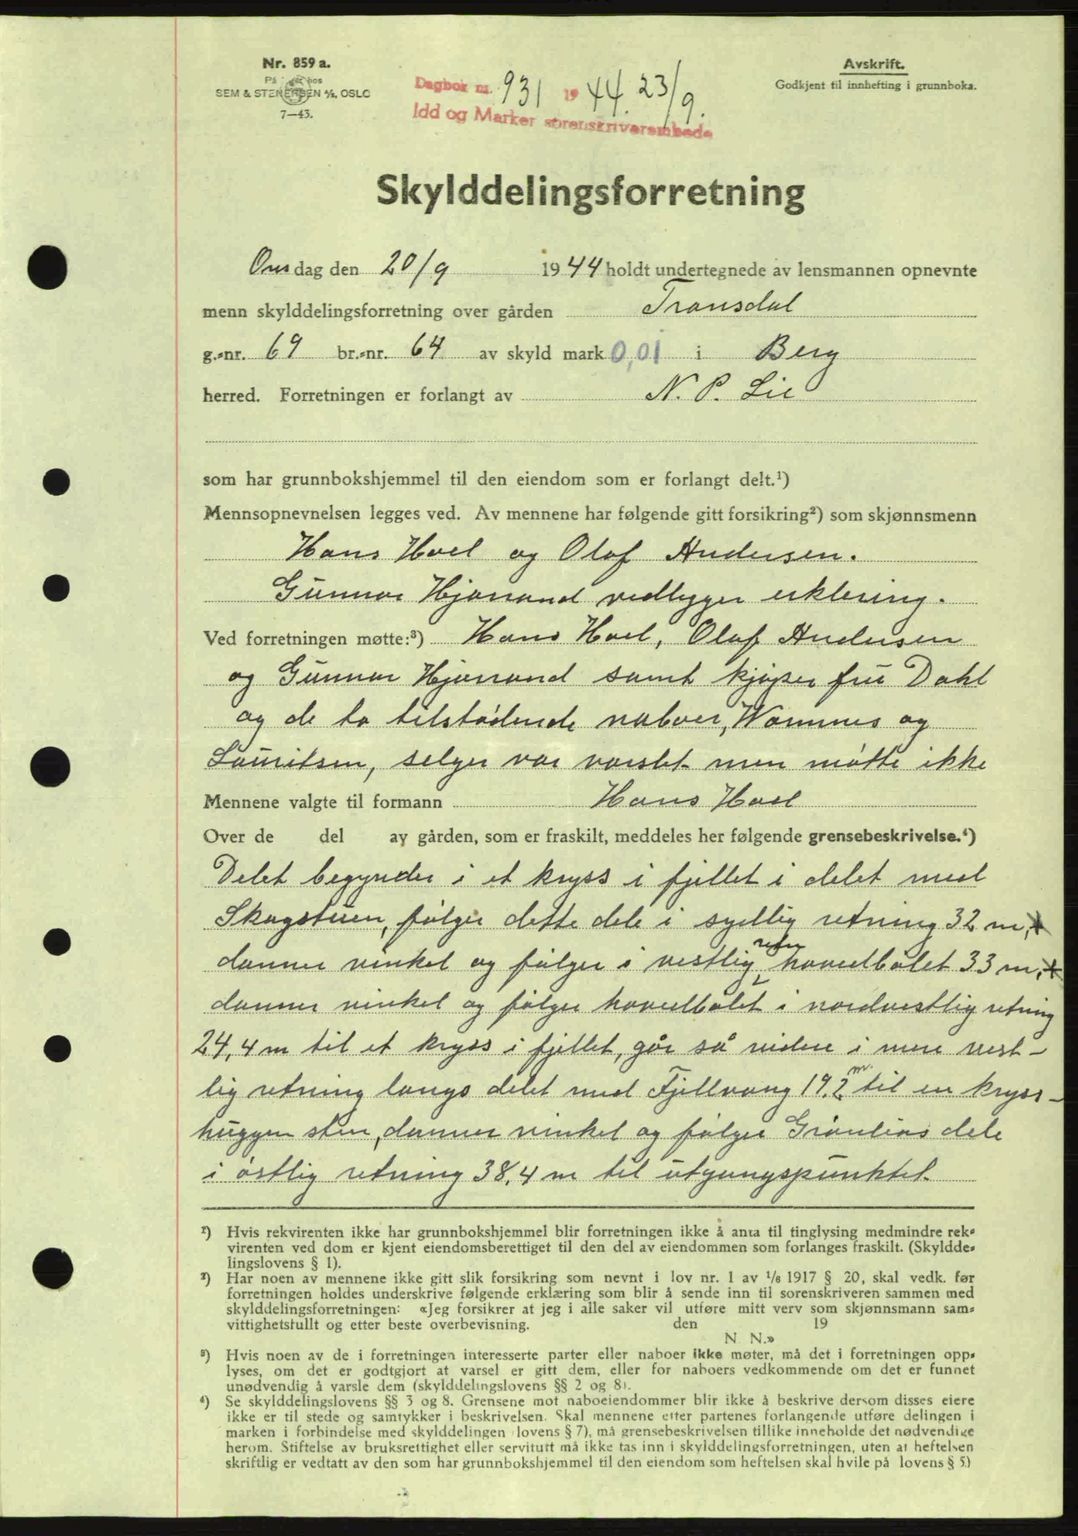 Nr. 859 a.
På lager hos
SEM & STENERSEN A/S, OSLO
7—43.
Dagbok nr. 931 1944. 23/9.
Idd og Marker sorenskriverembede
Avskrift.
Godkjent til innhefting i grunnboka.
Skylddelingsforretning
Onsdag den 20/9 1944 holdt undertegnede av lensmannen opnevnte
menn skylddelingsforretning over gården Transdal
g.-nr. 69 br.-nr. 64 av skyld mark 0,01 i Berg
herred. Forretningen er forlangt av N. P. Lie
som har grunnbokshjemmel til den eiendom som er forlangt delt.¹)
Mennsopnevnelsen legges ved. Av mennene har følgende gitt forsikring²) som skjønnsmenn
Hans Hoel og Olaf Andersen.
Gunnar Hjorand vedlegger erklering.
Ved forretningen møtte:³) Hans Hoel, Olaf Andersen
og Gunnar Hjorand samt kjøper frue Dahl
og de to tilstødende naboer, Wamnes og
Lauritsen, selger var varslet men møtte ikke
Mennene valgte til formann Hans Hoel
Over de del av gården, som er fraskilt, meddeles her følgende grensebeskrivelse.⁴)
Delet begynder i et kryss i fjellet i delet med
Skogstuen, følger dette dele i sydlig retning 32 m,
danner vinkel og følger i vestlig retn hovedbølet 33 m,
danner vinkel og følger hovedbølet i nordvestlig retning
24,4 m til et kryss i fjellet, går så videre i mere vest-
lig retning langs delet med Fjellvang 19.2 m til en kryss-
huggen sten, danner vinkel og følger Grønlias dele
i østlig retning 38,4 m til utgangspunktet.
¹) Hvis rekvirenten ikke har grunnbokshjemmel blir forretningen ikke å anta til tinglysing medmindre rek-
virenten ved dom er kjent eiendomsberettiget til den del av eiendommen som forlanges fraskilt. (Skyldde-
lingslovens § 1).
²) Har noen av mennene ikke gitt slik forsikring som nevnt i lov nr. 1 av 1/6 1917 § 20, skal vedk. før
forretningen holdes underskrive følgende erklæring som blir å sende inn til sorenskriveren sammen med
skylddelingsforretningen: «Jeg forsikrer at jeg i alle saker vil utføre mitt verv som skjønnsmann sam-
vittighetsfullt og etter beste overbevisning. den 19
N N.»
³) Hvis noen av de i forretningen interesserte parter eller naboer ikke møter, må det i forretningen opp-
lyses, om det er godtgjort at varsel er gitt dem, eller for naboers vedkommende om det er funnet
unødvendig å varsle dem (skylddelingslovens §§ 2 og 8).
⁴) Se skylddelingslovens §§ 3 og 8. Grensene mot naboeiendommer blir ikke å beskrive dersom disses eiere
ikke er til stede og samtykker i beskrivelsen. Skal mennene etter partenes forlangende utføre delingen i
marken i forbindelse med skylddelingen (lovens § 7), må grensebeskrivelsen tillike inneholde det nødvendige
herom. Stiftelse av bruksrettighet eller servitutt må ikke tas inn i skylddelingsforretningen, uten at heftelsen
skriftlig er vedtatt av den som har grunnbokshjemmel til den eiendom som heftelsen skal hvile på (lovens § 5)